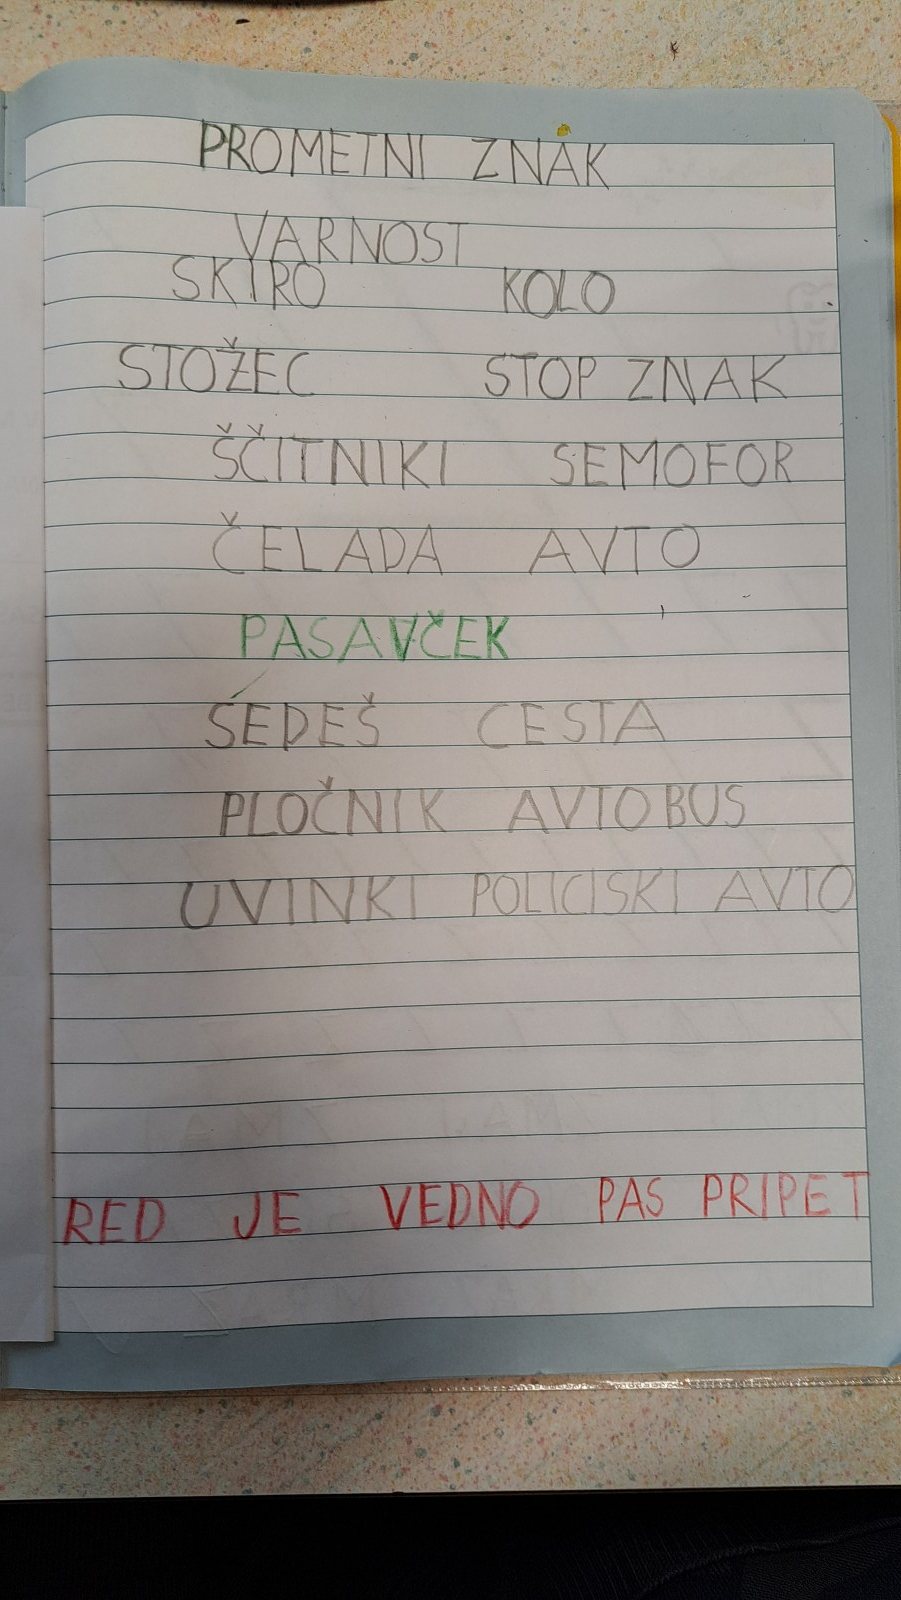 PROMETNI ZNAK
VARNOST
SKIRO KOLO
STOŽEC STOP ZNAK
ŠČITNIKI SEMOFOR
ČELADA AVTO
PASAVČEK
SEDEŠ CESTA
PLOČNIK AVTOBUS
OVINKI POLICISKI AVTO
RED JE VEDNO PAS PRIPET